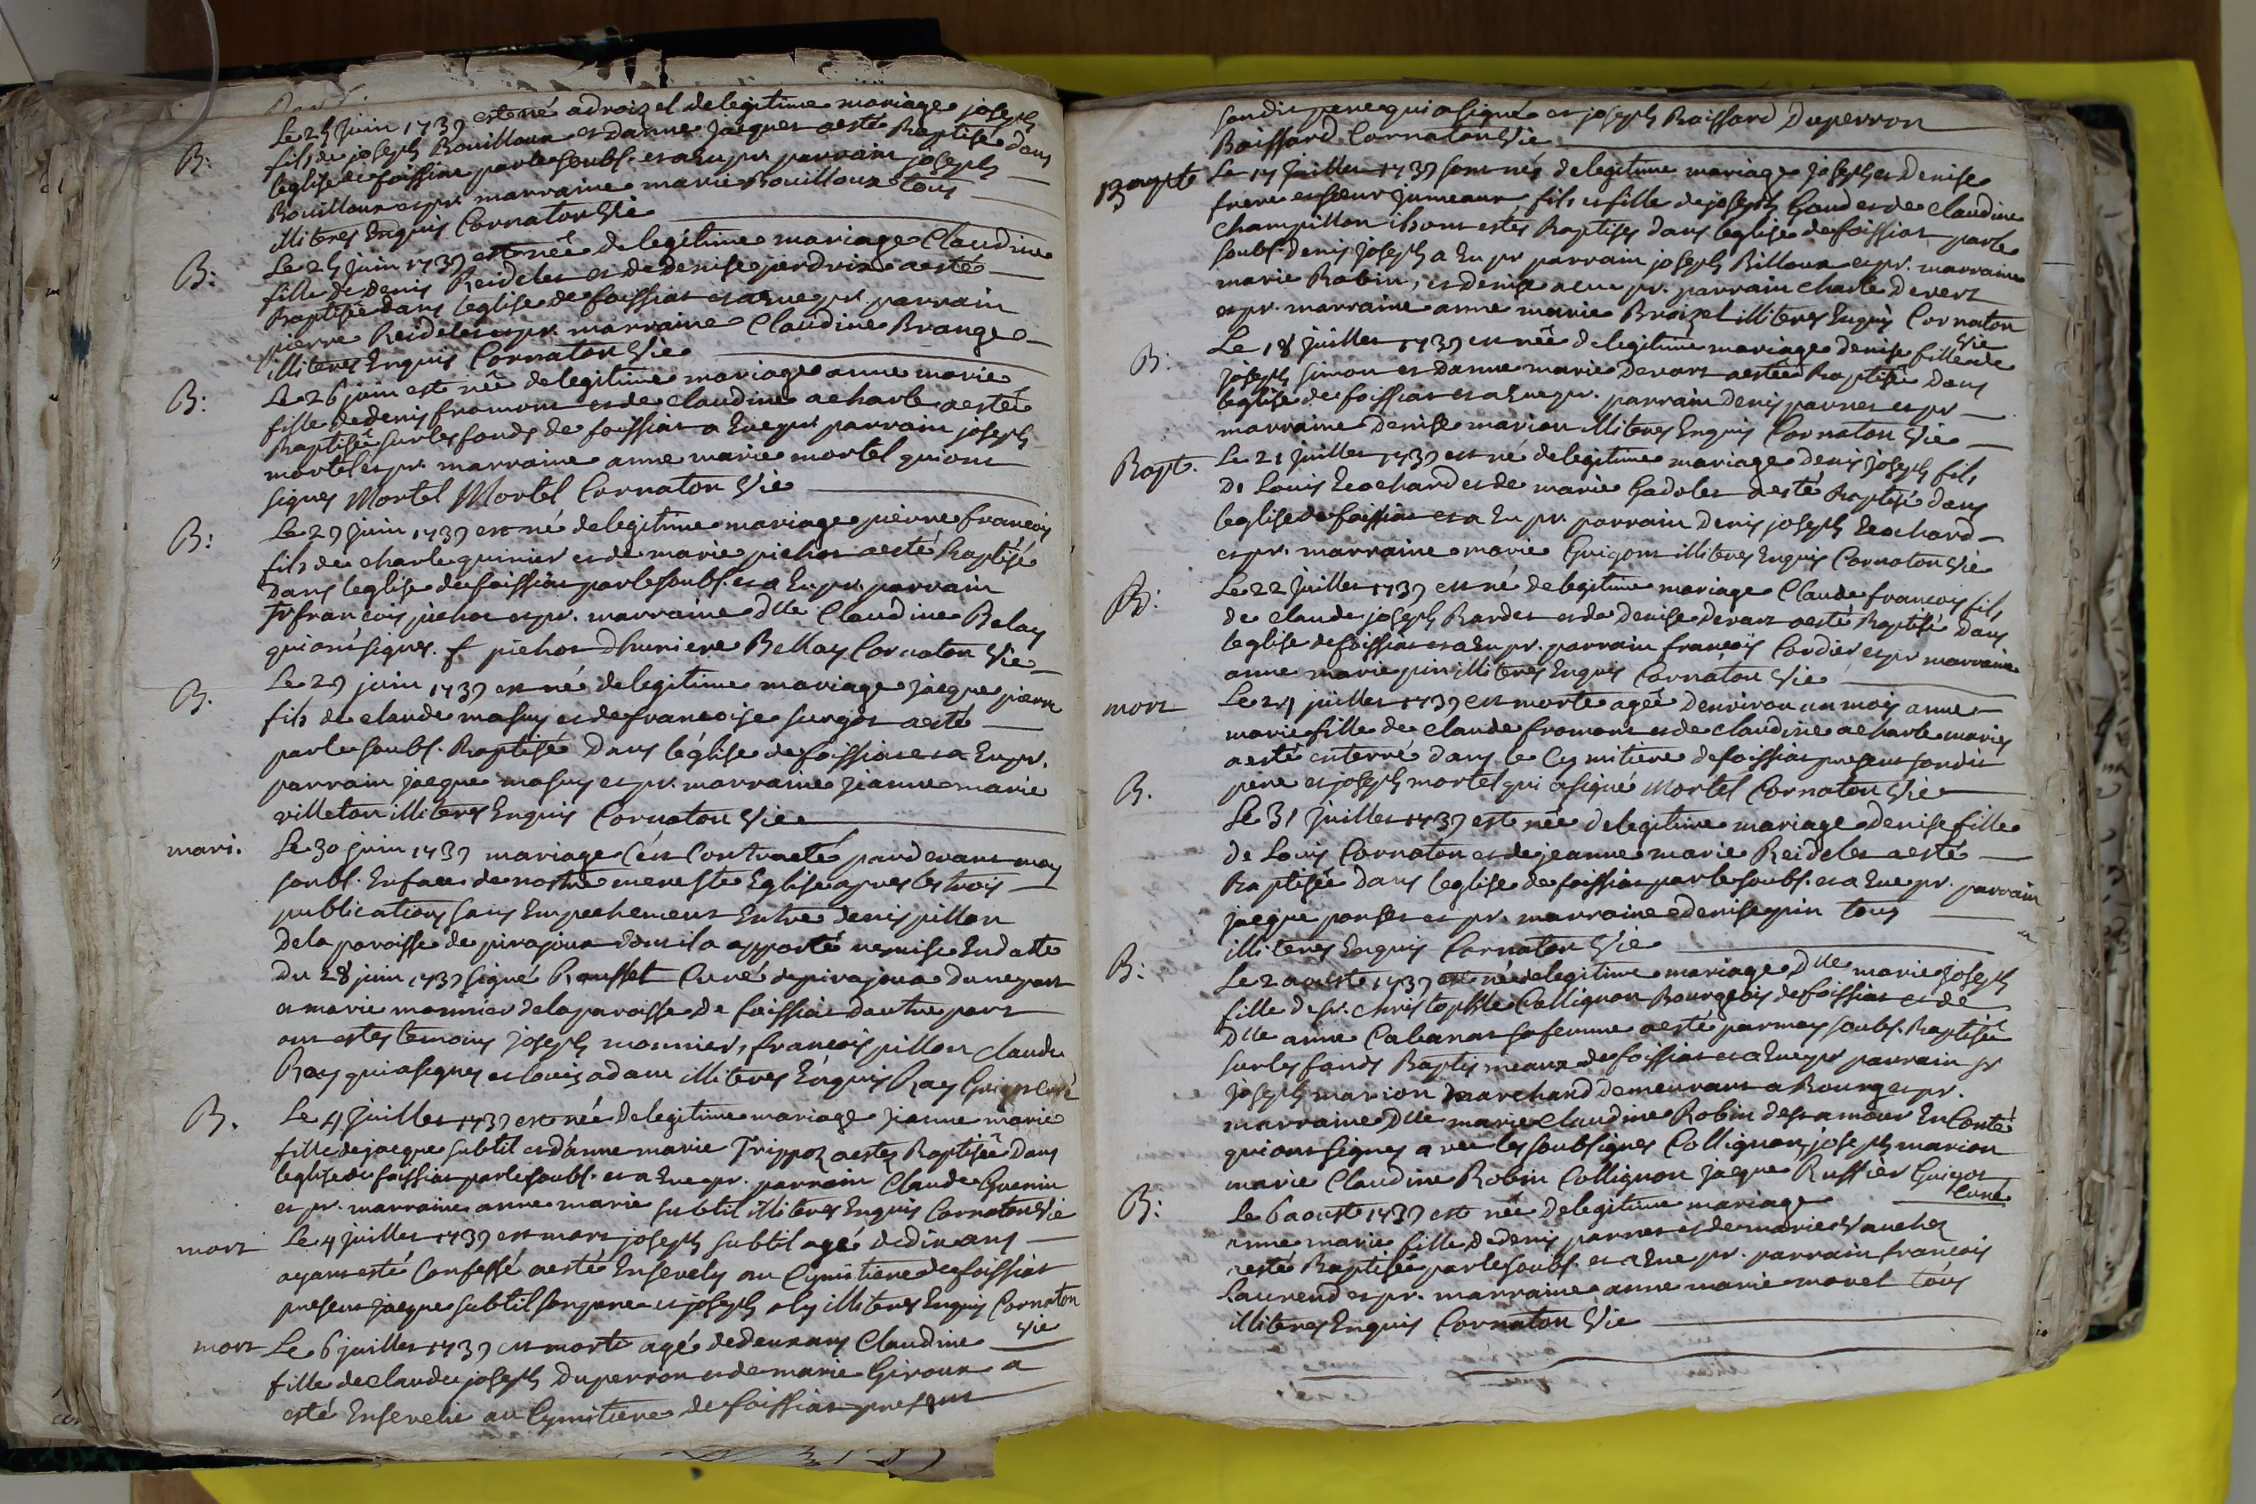 B: Le 25 juin 1737 est né a droizel de legitime mariage joseph
fils de joseph Bouilloux et danne jacques a esté Baptisé dans
leglise de foissiat par le soubs. et a Eu pr parrain joseph
Bouilloux et pr. marraine marie Bouilloux tous
illiteres Enquis Cornaton Vic
B: Le 25 juin 1737 est née de legitime mariage Claudine
fille de denis Reidelet et de denise perdrix a esté
Baptisée dans leglise de foissiat et a Eue pr. parrain
pierre Reidelet et pr. marraine Claudine Brange
illiteres Enquis Cornaton Vic
B: Le 26 juin est née de legitime mariage anne marie
fille de denis fromont et de claudine acharle a esté
Baptisée sur les fonds de foissiat a Eue pr parrain joseph
mortel et pr. marraine anne marie mortel qui ont
signes Mortel Mortel Cornaton Vic
B: Le 27 juin 1737 est né de legitime mariage pierre francois
fils de charle quinier et de marie pichot a esté Baptisé
Dans leglise de foissiat par le soubs. et a Eu pr. parrain
Sr francois pichot et pr. marraine Dlle Claudine Belay
qui ont signes. f pichot Dhuriere Bellay Cornaton Vic
B. Le 27 juin 1737 est né de legitime mariage jacque pierre
fils de claude masuy et de francoise surgot a esté
par le soubs. Baptisé Dans léglise de foissiat et a Eu pr.
parrain jacque masuy et pr. marraine jeanne marie
villeton illiteres Enquis Cornaton Vic
mari. Le 30 juin 1737 mariage s'est Contracté pardevant moy
soubs. En face de nostre mere Ste Eglise apres les trois
publications sans Empechement Entre denis pillon
De la paroisse de pirajoux dont il a apporté remise En datte
Du 28 juin 1737 signé Rousset Curé de pirajoux dune part
a marie monnier de la paroisse De foissiat dautre part
ont estes temoins joseph monnier, francois pillon claude
Ray qui a signes et louis adam illiteres Enquis Ray Guigot curé
B. Le 4 juillet 1737 est née de legitime mariage jeanne marie
fille de jacque subtil et danne marie Trippoz a estez Baptisée Dans
leglise de foissiat par le soubs. et a Eue pr. parrain Claude Guerin
et pr. marraine anne marie subtil illiteres Enquis Cornaton Vic
mort Le 4 juillet 1737 est mort joseph subtil agé de dix ans
ayant esté Confessé a esté Ensevely au Cymitiere de foissiat
present jacque subtil son pere et joseph aly illiteres Enquis Cornaton
Vic
mort Le 6 juillet 1737 est morte agé de deux ans Claudine
fille de claude joseph Duperron et de marie Giroux a
esté Ensevelie au Cymitiere de foissiat present
son dit pere qui a signé et joseph Boissard Duperron
Boissard Cornaton Vic
Bapte Le 17 juillet 1737 sont nés de legitime mariage joseph et Denise
frere et soeur jumeaux fils et fille de joseph Goud et de claudine
champillon ils ont estés Baptises dans leglise de foissiat par le
soubs. denis joseph a Eu pr parrain joseph Billoux et pr. marraine
marie Robin, et denise a eue pr. parrain charle devert
et pr. marraine anne marie Broizel illiteres Enquis Cornaton
Vic
B. Le 18 juillet 1737 est née de legitime mariage denise fille de
joseph simon et danne marie devert a estée Baptisée dans
leglise de foissiat et a Eue pr. parrain denis parnet et pr
marraine Denise marion illiteres Enquis Cornaton Vic
Bapt. Le 21 juillet 1737 est né de legitime mariage denis joseph fils
De Louis Leochard et de marie Gadolet a esté Baptisé dans
leglise de foissiat et a Eu pr. parrain Denis joseph Leochard
et pr. marraine marie Guigon illiteres Enquis Cornaton Vic
B: Le 22 juillet 1737 est né de legitime mariage Claude francois fils
de claude joseph Bardet et de Denise devert a esté Baptisé dans
leglise de foissiat et a Eu pr. parrain francois Cordier et pr marraine
anne marie pin illiteres Enquis Cornaton Vic
mort Le 24 juillet 1737 est morte agée denviron un mois anne
marie fille de claude fromont et de claudine acharle maries
a esté enterré dans le Cymitiere de foissiat present son dit
pere et joseph mortel qui a signé Mortel Cornaton Vic
B. Le 31 juillet 1737 est née de legitime mariage Denise fille
de Louis Cornaton et de jeanne marie Reidelet a esté
Baptisée dans leglise de foissiat par le soubs. et a Eue pr. parrain
jacque ponset et pr. marraine denise pin tous
illiteres Enquis Cornaton Vic
B: Le 2 aoust 1737 est née de legitime mariage Dlle marie joseph
fille de sr. christophle Collignon Bourgeois de foissiat et de
Dlle anne Cabanat sa femme a esté par moy soubs. Baptisée
sur les fonds Baptismeaux de foissiat et a Eue pr parrain sr
joseph marion marchand demeurant a Bourg et pr.
marraine Dlle marie Claudine Robin de st amour En Conté
qui ont signes avec les soubsignes Collignon, joseph marion
marie Claudine Robin Collignon jacque Ruffier Guigot
Curé
B: Le 6 aoust 1737 est née de legitime mariage
anne marie fille de denis parnet et de marie Vauchez
a esté Baptisée par le soubs. et a Eue pr. parrain francois
Laurend et pr. marraine anne marie morel tous
illiteres Enquis Cornaton Vic